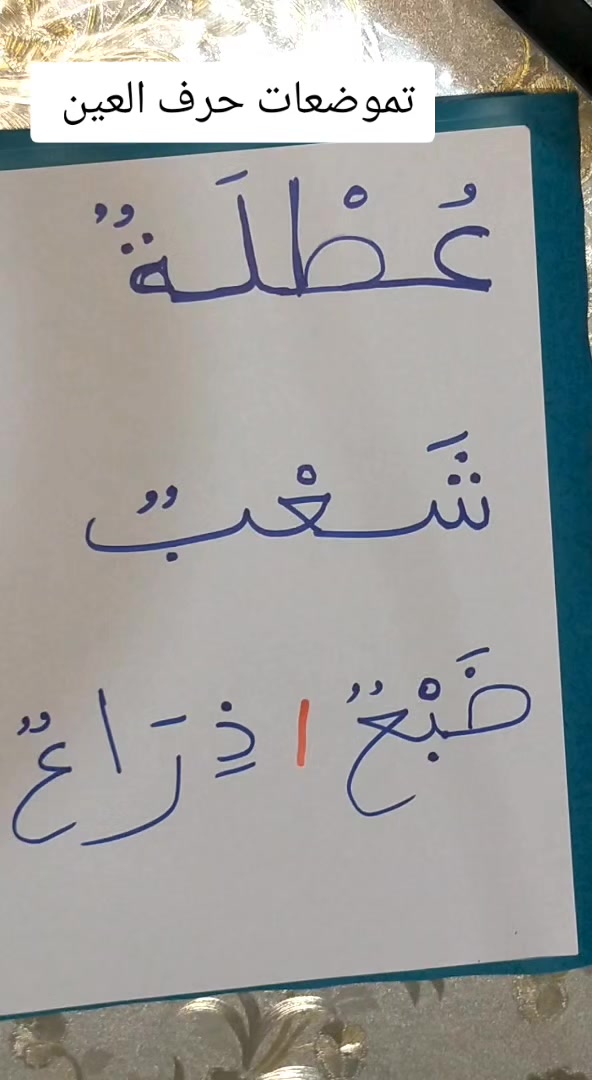 تموضعات حرف العين
عُطْلَةٌ
شَعْبٌ
ضَبْعٌ ا ذِرَاعٌ